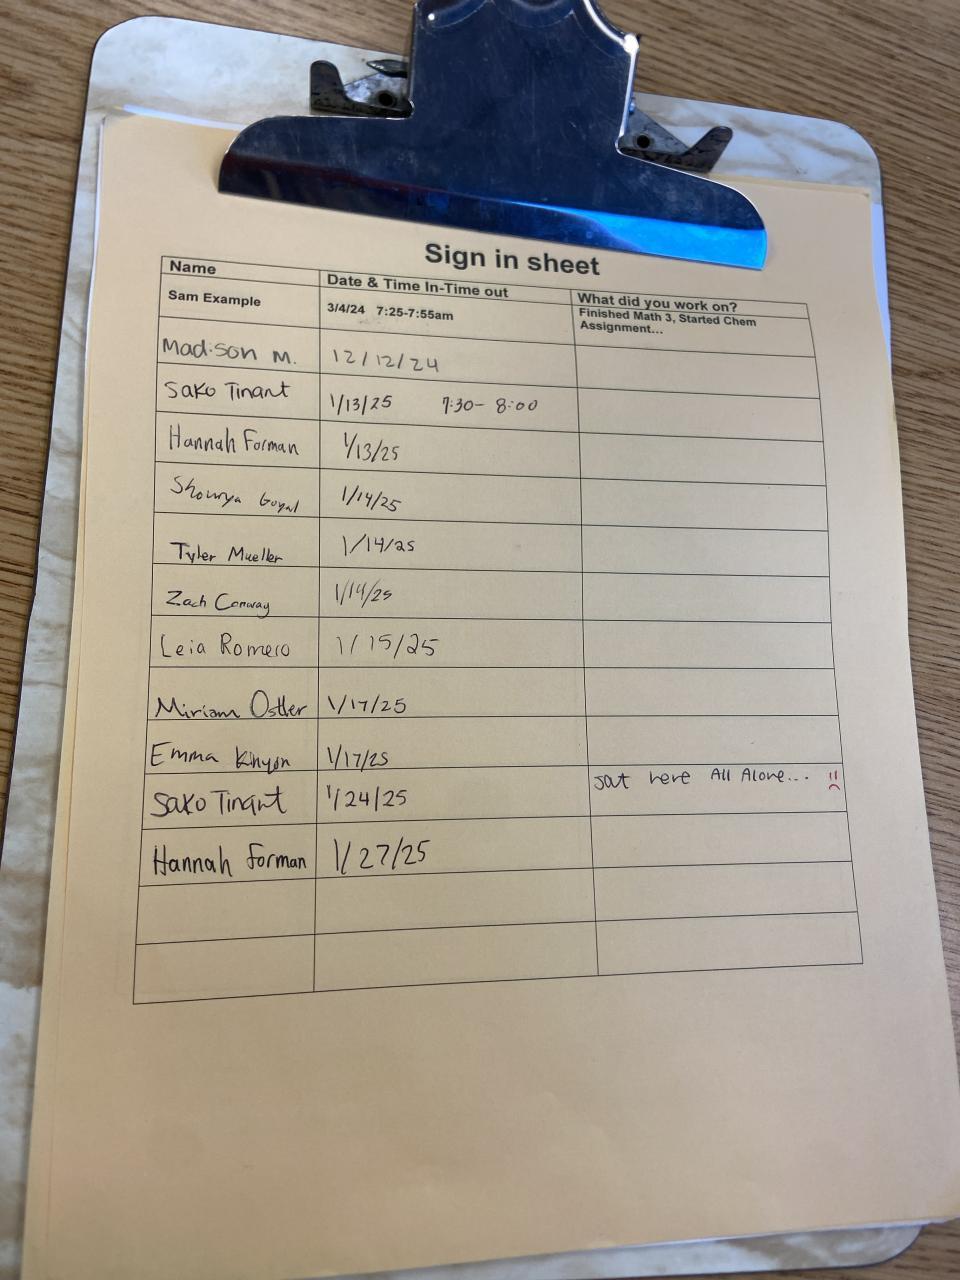 Sign in sheet
Name Date & Time In-Time out What did you work on?
Sam Example 3/4/24 7:25-7:55am Finished Math 3, Started Chem
Assignment...
Madison M. 12/12/24
Sako Tinant 1/13/25 7:30- 8:00
Hannah Forman 1/13/25
Shourya Goyal 1/14/25
Tyler Mueller 1/14/25
Zach Conway 1/14/25
Leia Romero 1/15/25
Miriam Ostler 1/17/25
Emma Kinyon 1/17/25
Sako Tinant 1/24/25 sat here All Alone...
Hannah Forman 1/27/25